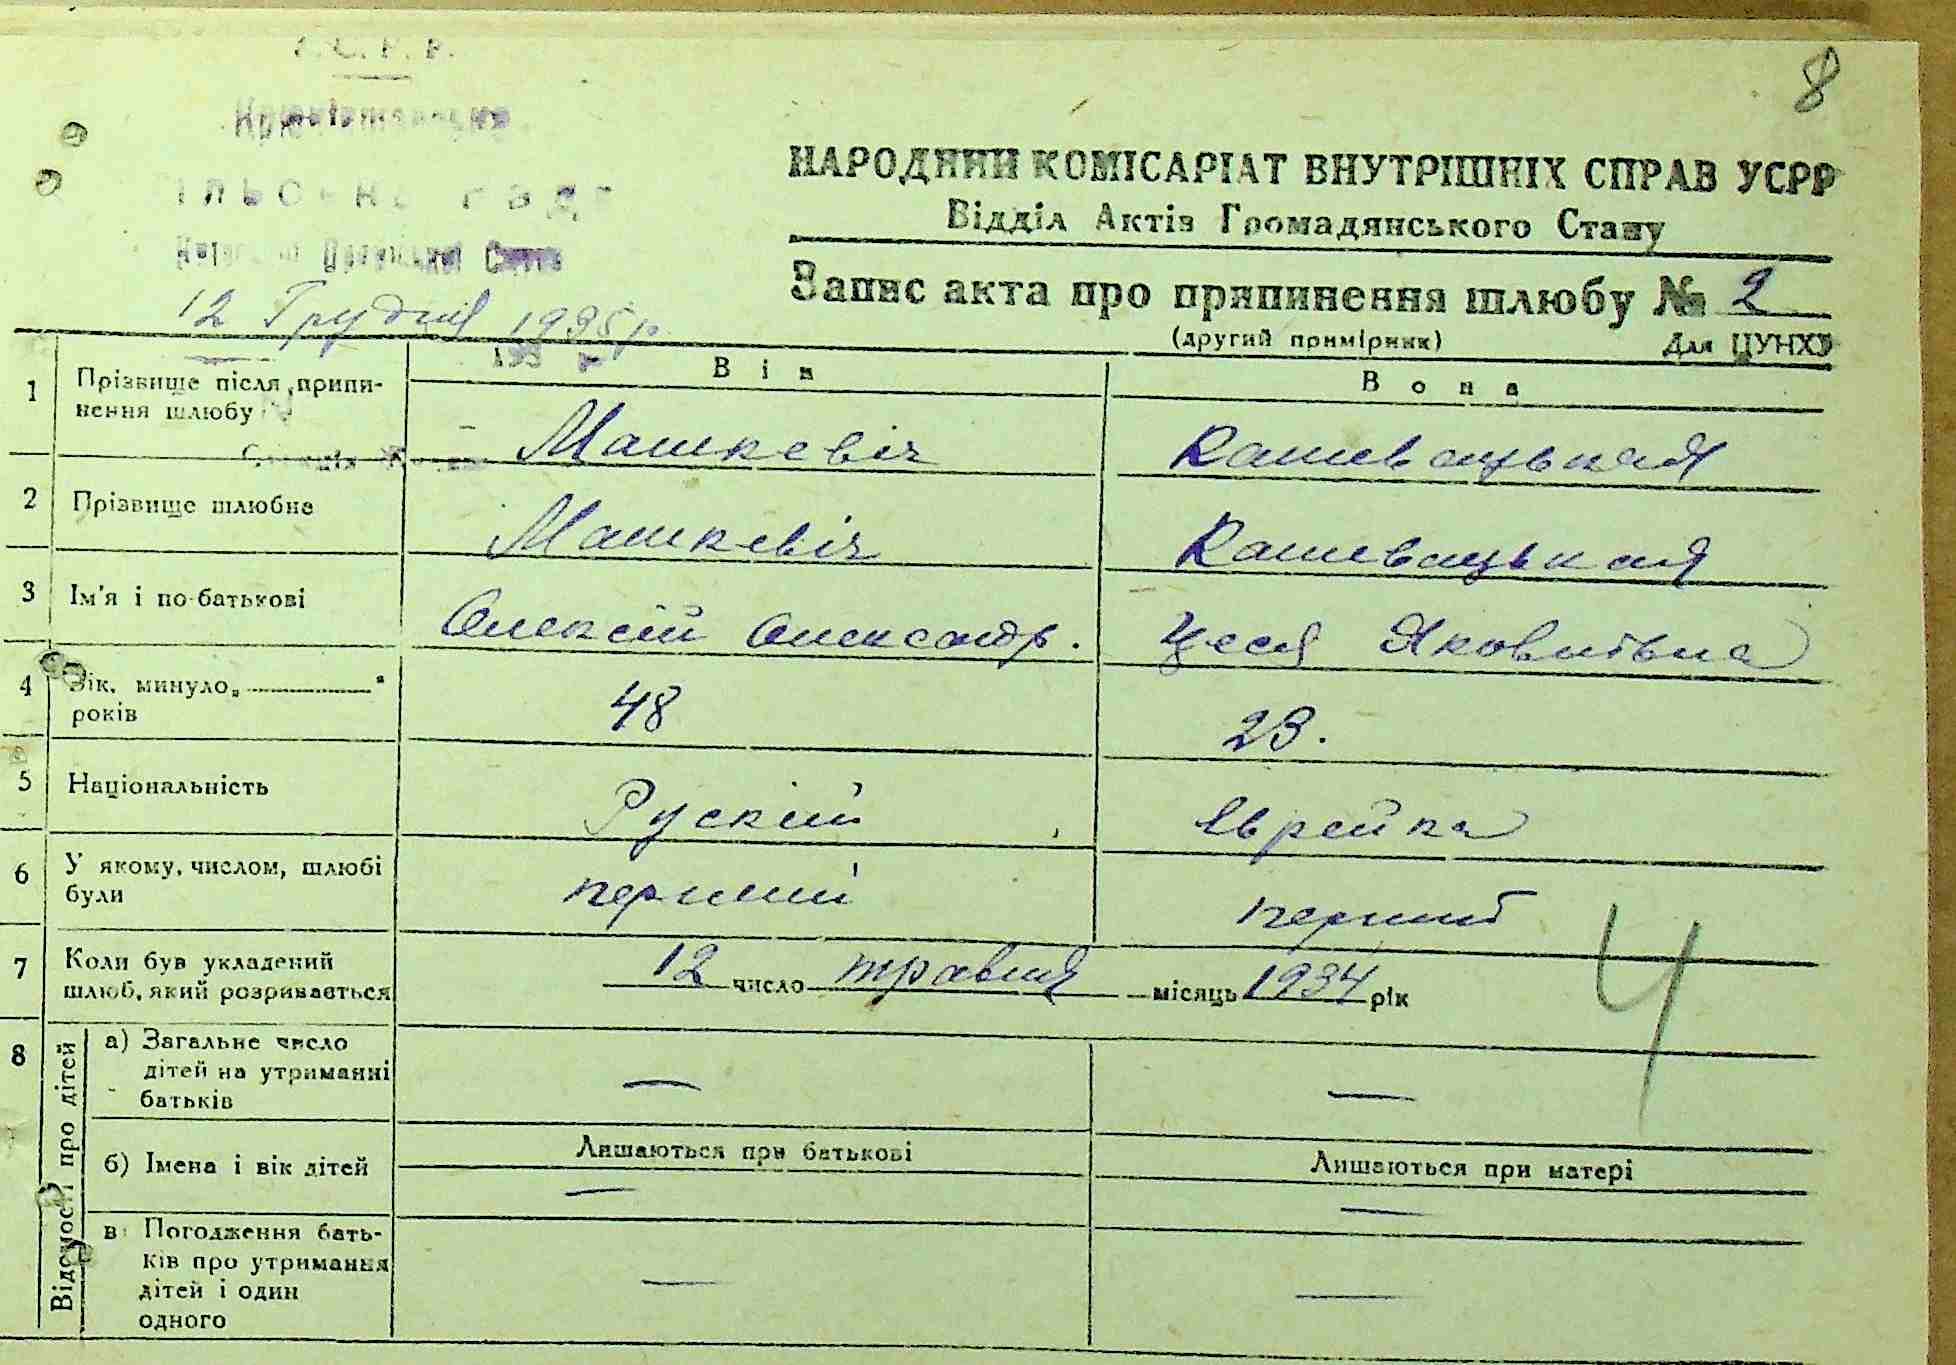 8
НАРОДНИЙ КОМІСАРІАТ ВНУТРІШНІХ СПРАВ УСРР
Відділ Актів Громадянського Стану
Запис акта про припинення шлюбу № 2
(другий примірник) Для ЦУНХУ
12 Грудня 1935 р.
193 р
Він Вона
1 Прізвище після припи-
нення шлюбу Машкевіч Кашевацькая
2 Прізвище шлюбне Машкевіч Кашевацькая
3 Ім'я і по-батькові Олексій Олександр. Цеся Яковлівна
4 Вік, минуло „ “
років 48 23.
5 Національність Рускій Єврейка
6 У якому, числом, шлюбі
були перший перший
7 Коли був укладений
шлюб, який розривається 12 число травня місяць 1934 рік
Ч
8 Відомості про дітей
а) Загальне число
дітей на утриманні
батьків — —
б) Імена і вік дітей Лишаються при батькові Лишаються при матері
— —
в) Погодження бать-
ків про утримання
дітей і один
одного — —